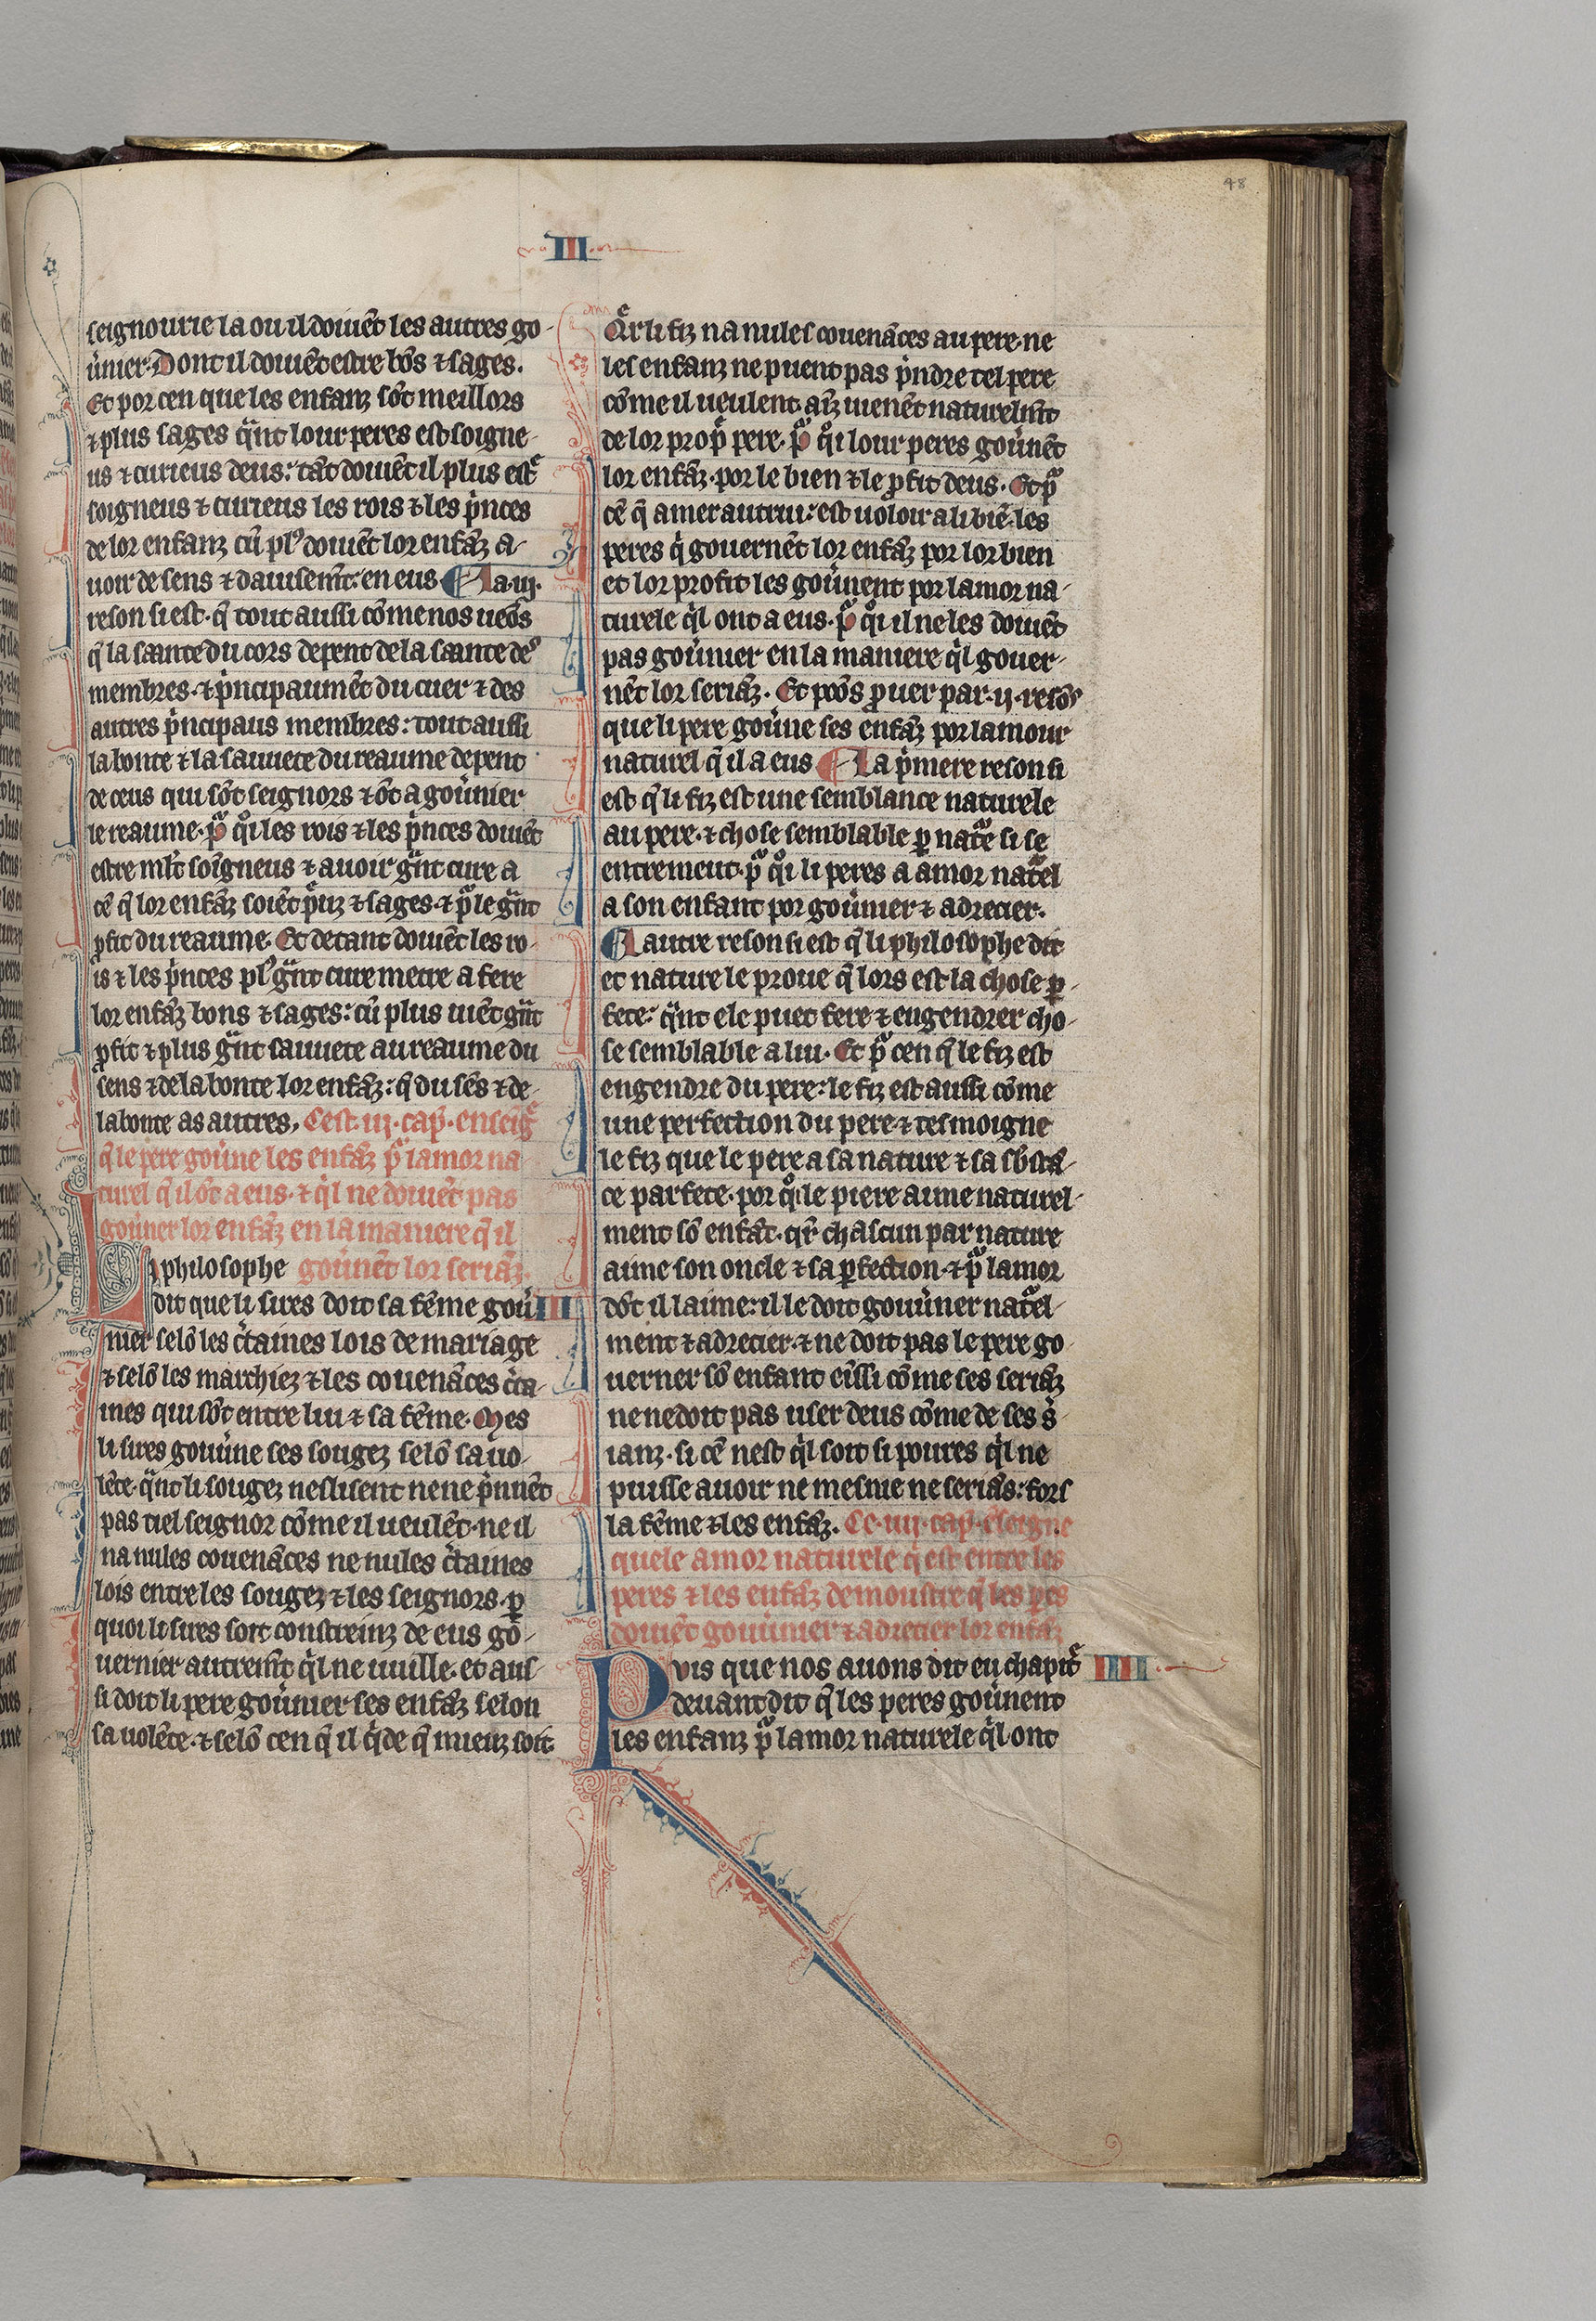 48
III
seignourie la ou il doiuēt les autres go-
u̾nier. Dont il doiuēt estre bōs ⁊ sages.
Et por cen que les enfanz sōt meillors
⁊ plus sages qᵃnt lour peres est soigne-
us ⁊ curieus deus: tāt doiuēt il plus estᵉ
soigneus ⁊ curieus les rois ⁊ les pͥnces
de lor enfanz cū plꝰ doiuēt lor enfāz a-
uoir de sens ⁊ dauisemt̄. en eus ¶ La .iij.
reson si est. q̄ tout aussi cōme nos ueōs
q̄ la sante du cors depent de la sante deˢ
membres. ⁊ pͥncipaumēt du cuer ⁊ des
autres pͥncipaus membres: tout aussi
la bonte ⁊ la sauuete du reaume depent
de ceus qui sōt seignors ⁊ ōt a gou̾nier
le reaume. pᵃ qͦi les rois ⁊ les pͥnces doiuēt
estre ml̄t soigneus ⁊ auoir gᵃnt cure a
cē q̄ lor enfāz soiēt pᵉuz ⁊ sages. ⁊ pᵃ le gᵃnt
ꝓfit du reaume. Et de tant doiuēt les ro-
is ⁊ les pͥnces plꝰ gᵃnt cure metre a fere
lor enfāz bons ⁊ sages: cū plus uiēt gᵃnt
ꝓfit ⁊ plus gᵃnt sauuete au reaume du
sens ⁊ de la bonte lor enfāz: q̄ du sēs ⁊ de
la bonte as autres. Cest .iij. cap̄. enseigᵉ
q̄ le pere gou̾ne les enfāz pᵃ lamor na-
turel q̄ il ōt a eus. ⁊ qͥl ne doiuēt pas
gou̾ner lor enfāz en la maniere q̄ il
Li philosophe gou̾nēt lor seriāz.
dit que li sires doit sa fēme gou̾ III
nier selō les c̾taines lois de mariage
⁊ selō les marchiez ⁊ les couenāces c̾ta-
ines qui sōt entre lui ⁊ sa fēme. Mes
li sires gouu̾ne ses sougez selō sa uo-
lēte. qᵃnt li sougez neslisent ne ne pͥnnēt
pas tiel seignor cōme il ueulēt. ne il
na nules couenāces ne nules c̾taines
lois entre les sougez ⁊ les seignors. ꝑ
quoi li sires soit constreinz de eus go-
uernier autremt̄ qͥl ne uuille. et aus-
si doit li pere gou̾nier ses enfāz selon
sa uolēte. ⁊ selō cen q̄ il qͥde q̄ mieuz soit
Qᵃr li fiz na nules couenāces au pere. ne
les enfanz ne puent pas pͥndre tel pere
cōme il ueulent. aīz uienēt naturelmt̄
de lor propᵉ pere. pᵃ qͦi lour peres gou̾nēt
lor enfāz. por le bien ⁊ le ꝓfit deus. Et pᵃ
cē q̄ amer autrui: est uoloir a li biē. les
peres qͥ gouernēt lor enfāz por lor bien
et lor profit les gou̾nent por lamor na-
turele qͥl ont a eus. pᵃ qͦi il ne les doiuēt
pas gou̾nier en la maniere qͥl gouer-
nēt lor seriāz. Et poōs ꝓuer par .ij. resōs
que li pere gou̾ne ses enfāz por lamour
naturel q̄ il a eus ¶ La pͥmere reson si
est q̄ li fiz est une semblance naturele
au pere. ⁊ chose semblable ꝑ natᵉe si se
entremeut. pᵃ qͦi li peres a amor natᵉel
a son enfant por gou̾nier ⁊ adrecier.
¶ Lautre reson si est q̄ li philosophe dit
et nature le proue q̄ lors est la chose ꝑ-
fete: qᵃnt ele puet fere ⁊ engendrer cho-
se semblable a lui. Et pᵃ cen q̄ le fiz est
engendre du pere: le fiz est aussi cōme
une perfection du pere ⁊ tesmoigne
le fiz que le pere a sa nature ⁊ sa sb̄stā-
ce parfete. por qͦi le piere aime naturel-
ment sō enfāt. qᵃr chascun par nature
aime son oncle ⁊ sa ꝑfection. ⁊ pᵃ lamor
dōt il laime: il le doit gouu̾ner natᵉel-
ment ⁊ adrecier. ⁊ ne doit pas le pere go
uerner sō enfant eīssi cōme ses seriāz
ne ne doit pas user deus cōme de ses s̾-
ianz. si cē nest qͥl soit si poures qͥl ne
puisse auoir ne mesnie ne seriās: fors
la fēme ⁊ les enfāz. Ce .iiij. cap̄. ēseigne
quele amor naturele qͥ est entre les
peres ⁊ les enfāz demoustre q̄ les ꝑes
doiuēt gouu̾nier ⁊ adrecier lor enfāz
Puis que nos auons dit eu chapitᵉ IIII
deuant dit q̄ les peres gou̾nent
les enfanz pᵃ lamor naturele qͥl ont